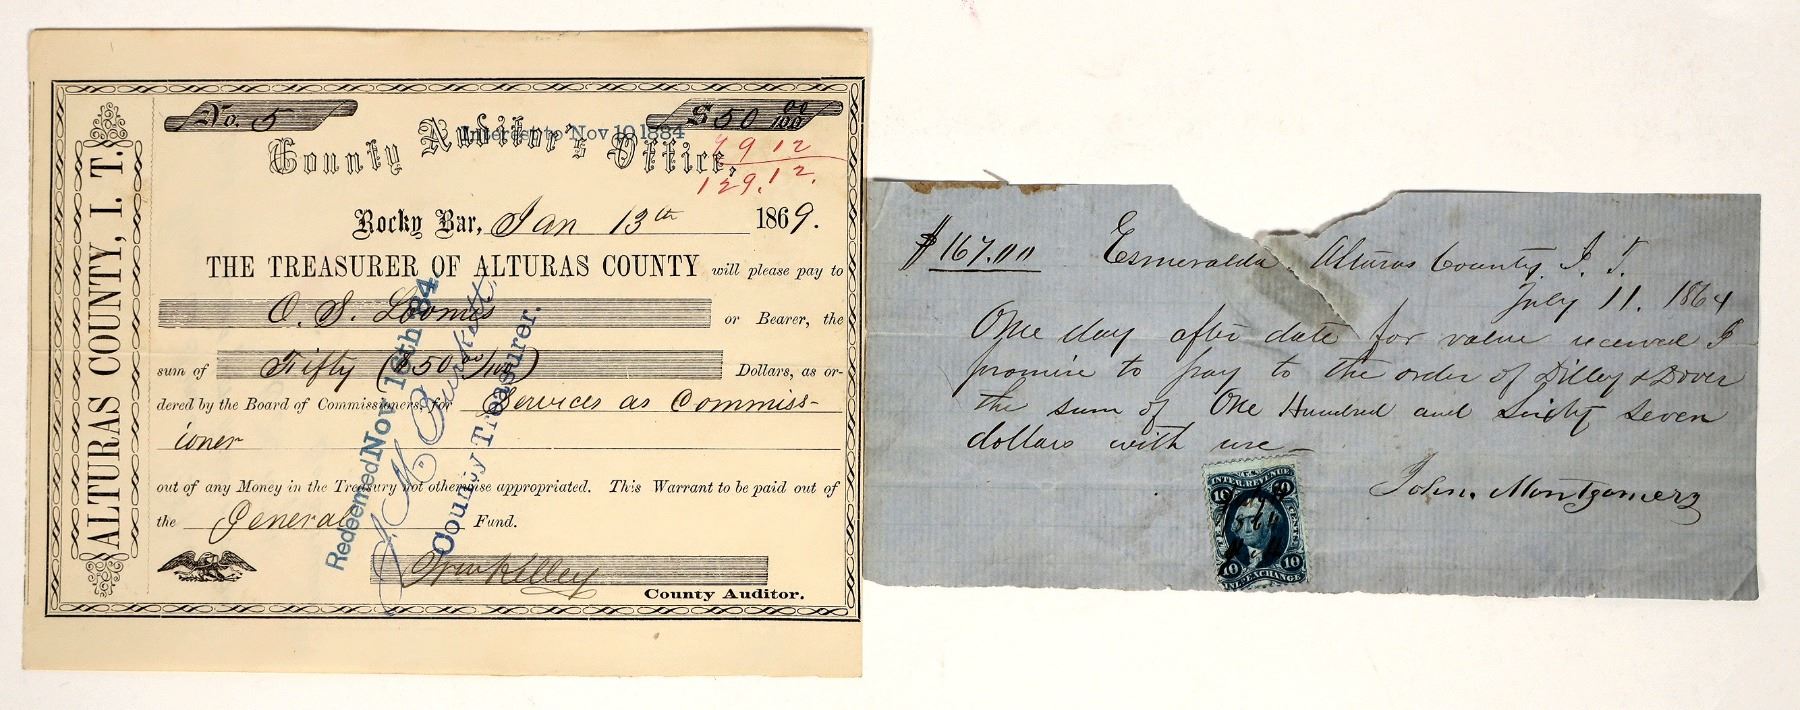 ALTURAS COUNTY, I. T.
No. 5
$50 00/100
County Auditor's Office,
Interest to Nov 10 1884
79 12
129.12.
Rocky Bar, Jan 13th 1869.
THE TREASURER OF ALTURAS COUNTY will please pay to
O. S. Loomis or Bearer, the
sum of Fifty ($50 00/100) Dollars, as or-
dered by the Board of Commissioners, for Services as Commiss-
ioner
out of any Money in the Treasury not otherwise appropriated. This Warrant to be paid out of
the General Fund.
County Auditor.
Redeemed Nov 16th 84
Burkett
County Treasurer.
$167.00 Esmeralda Alturas County. I. T.
July 11. 1864
One day after date for value received I
promise to pay to the order of Dilley & Dover
the sum of One Hundred and Sixty Seven
dollars with use
John. Montgomery
U.S.
INTER. REVENUE
10 10
TEN CENTS
10 10
INL. EXCHANGE